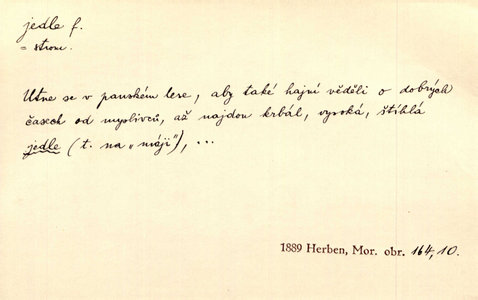 jedle f.
= strom.
Utne se v panském lese, aby také hajní věděli o dobrých
časech od myslivců, až najdou krbál, vysoká, štíhlá
jedle (t. na „máji"), ...
1889 Herben, Mor. obr. 164, 10.